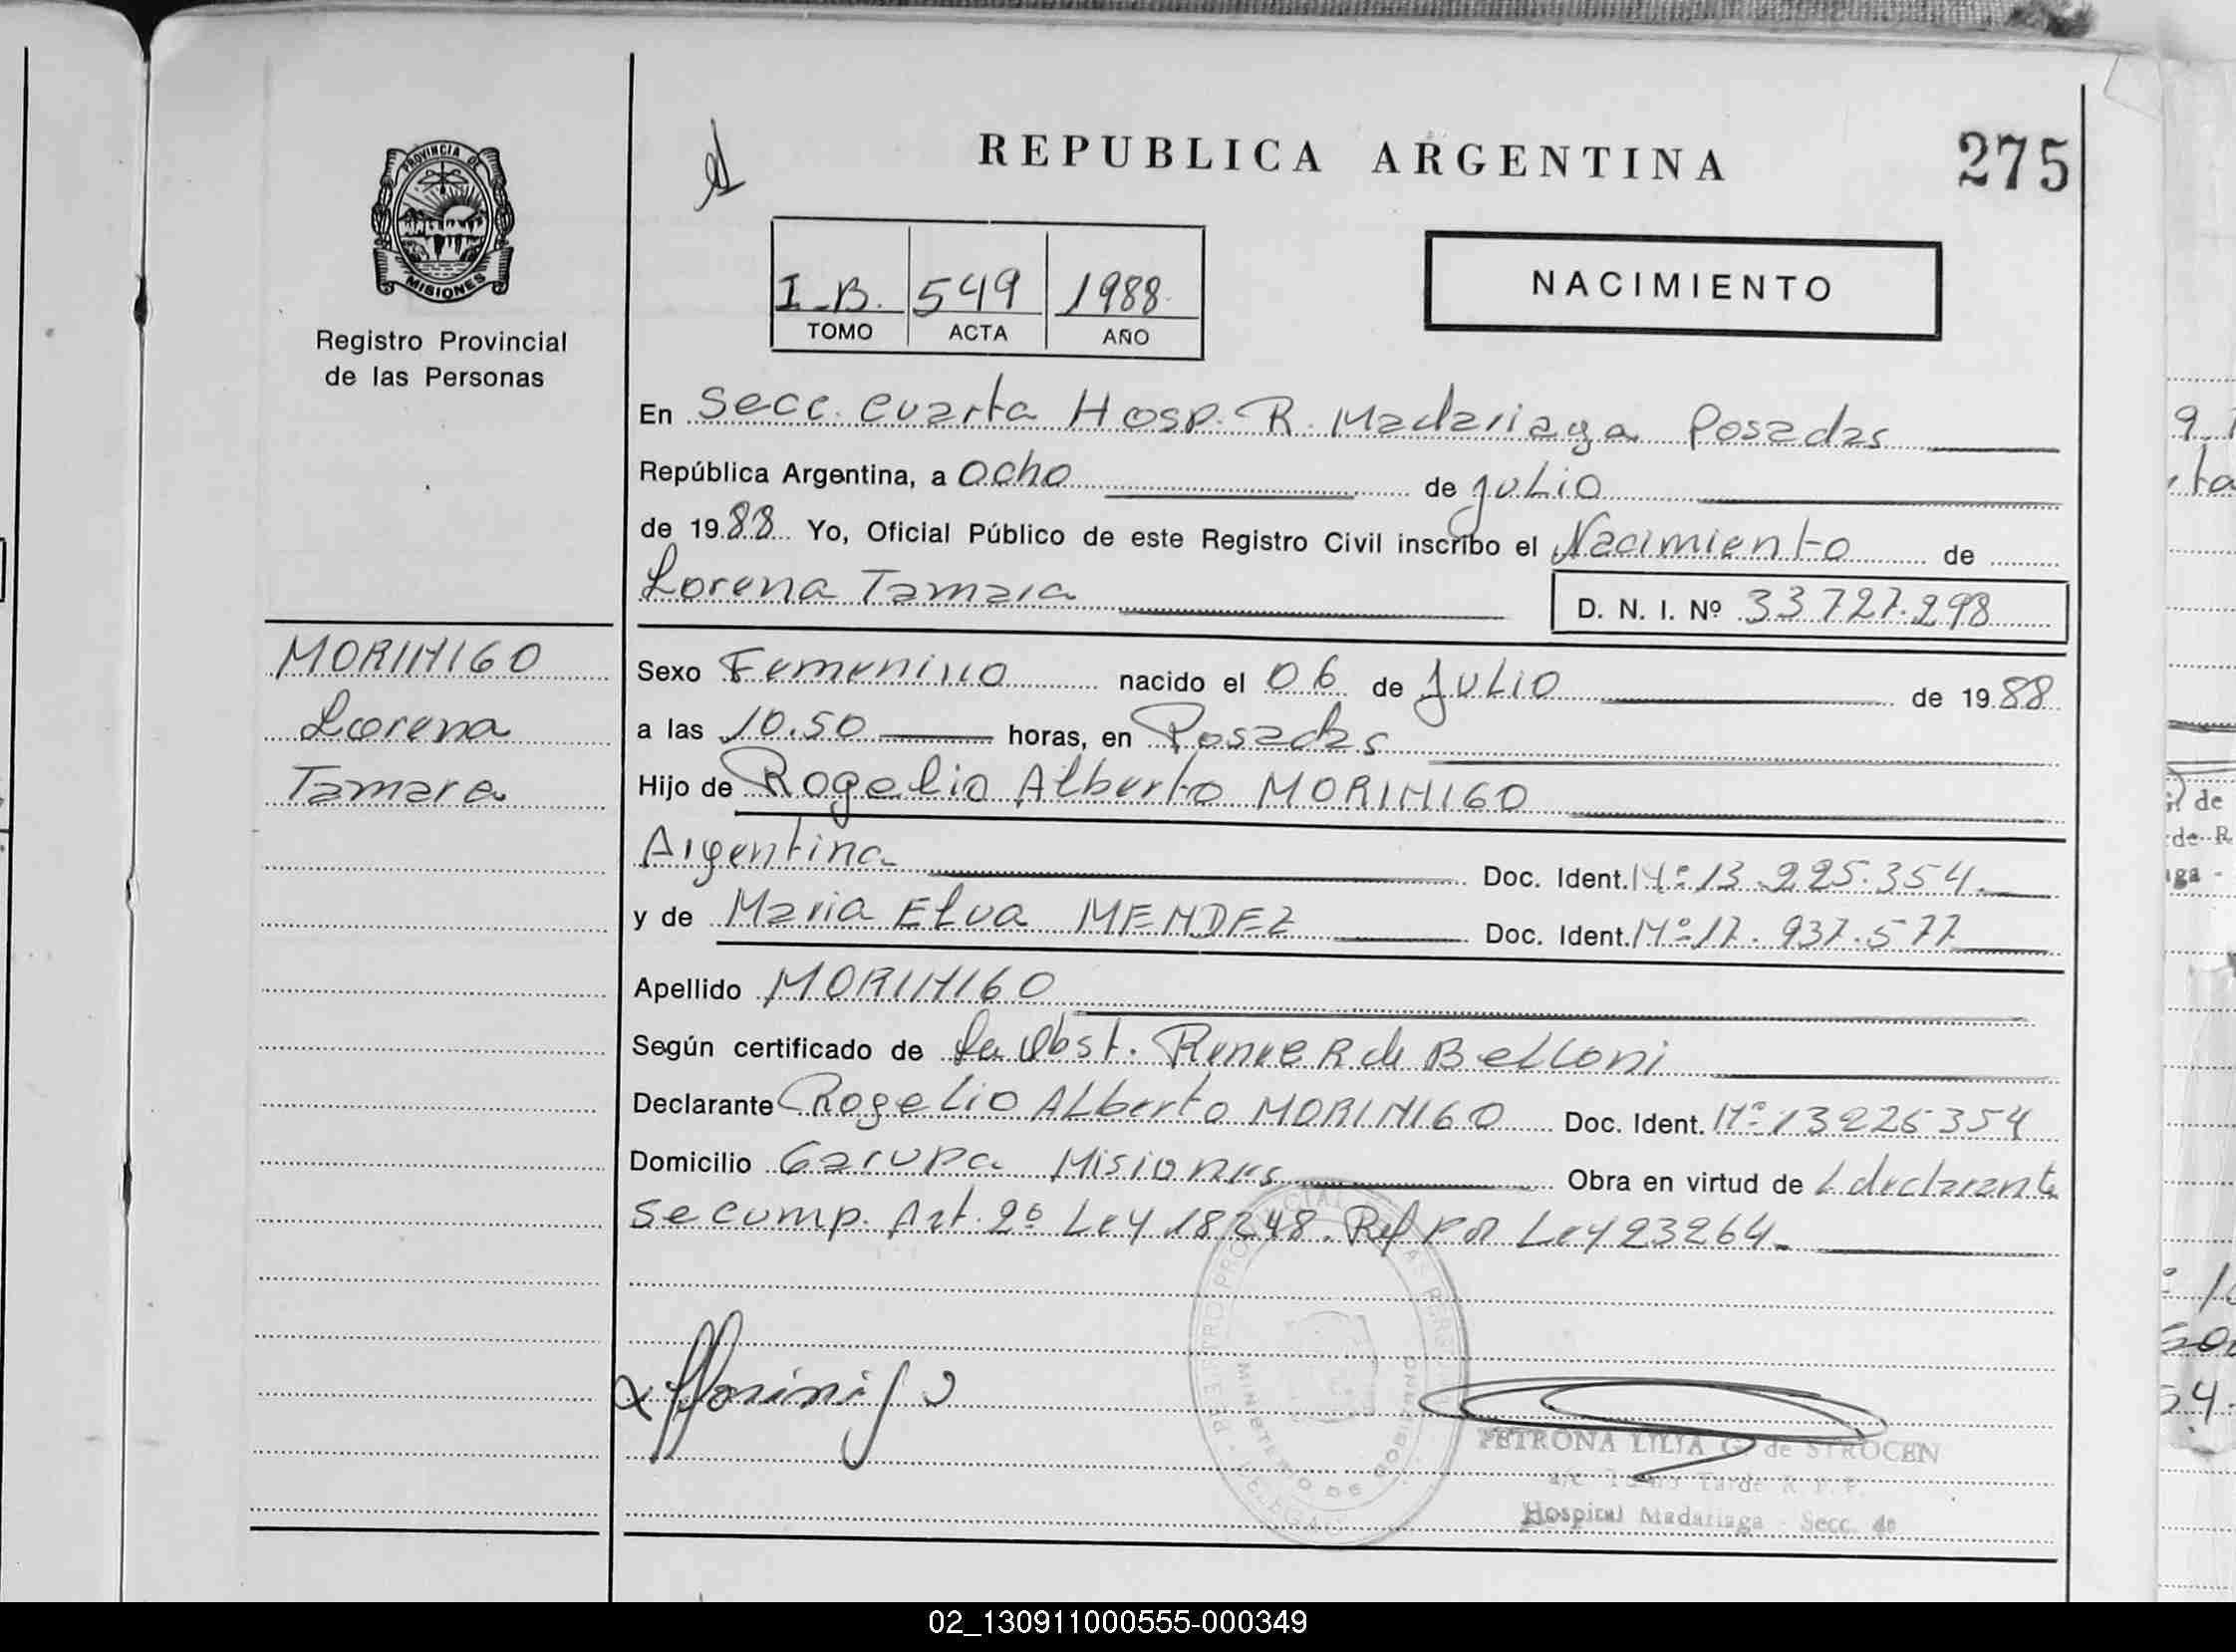 REPUBLICA ARGENTINA
275
PROVINCIA DE
MISIONES
Registro Provincial
de las Personas
I_B. 549 1988
TOMO ACTA AÑO
NACIMIENTO
En Secc. Cuarta Hosp. R. Madariaga Posadas
República Argentina, a Ocho de julio
de 1988 Yo, Oficial Público de este Registro Civil inscribo el Nacimiento de
Lorena Tamara
D. N. I. Nº 33.727.298
MORINIGO
Lorena
Tamara
Sexo Femenino nacido el 06 de Julio de 1988
a las 10.50 horas, en Posadas
Hijo de Rogelio Alberto MORINIGO
Argentina Doc. Ident. Nº 13.225.354.
y de Maria Elva MENDEZ Doc. Ident. Nº 17.937.577
Apellido MORINIGO
Según certificado de La Obst. Renee R de Belloni
Declarante Rogelio Alberto MORINIGO Doc. Ident. Nº 13225354
Domicilio Garupa Misiones Obra en virtud de L declarante
se cump. Art. 2º Ley 18248. Ref por Ley 23264.
Morinigo
MINISTERIO DE GOBIERNO
PETRONA LILIA G. de STROCEN
a/c Turno Tarde R. P. P.
Hospital Madariaga - Secc. 4a
02_130911000555-000349